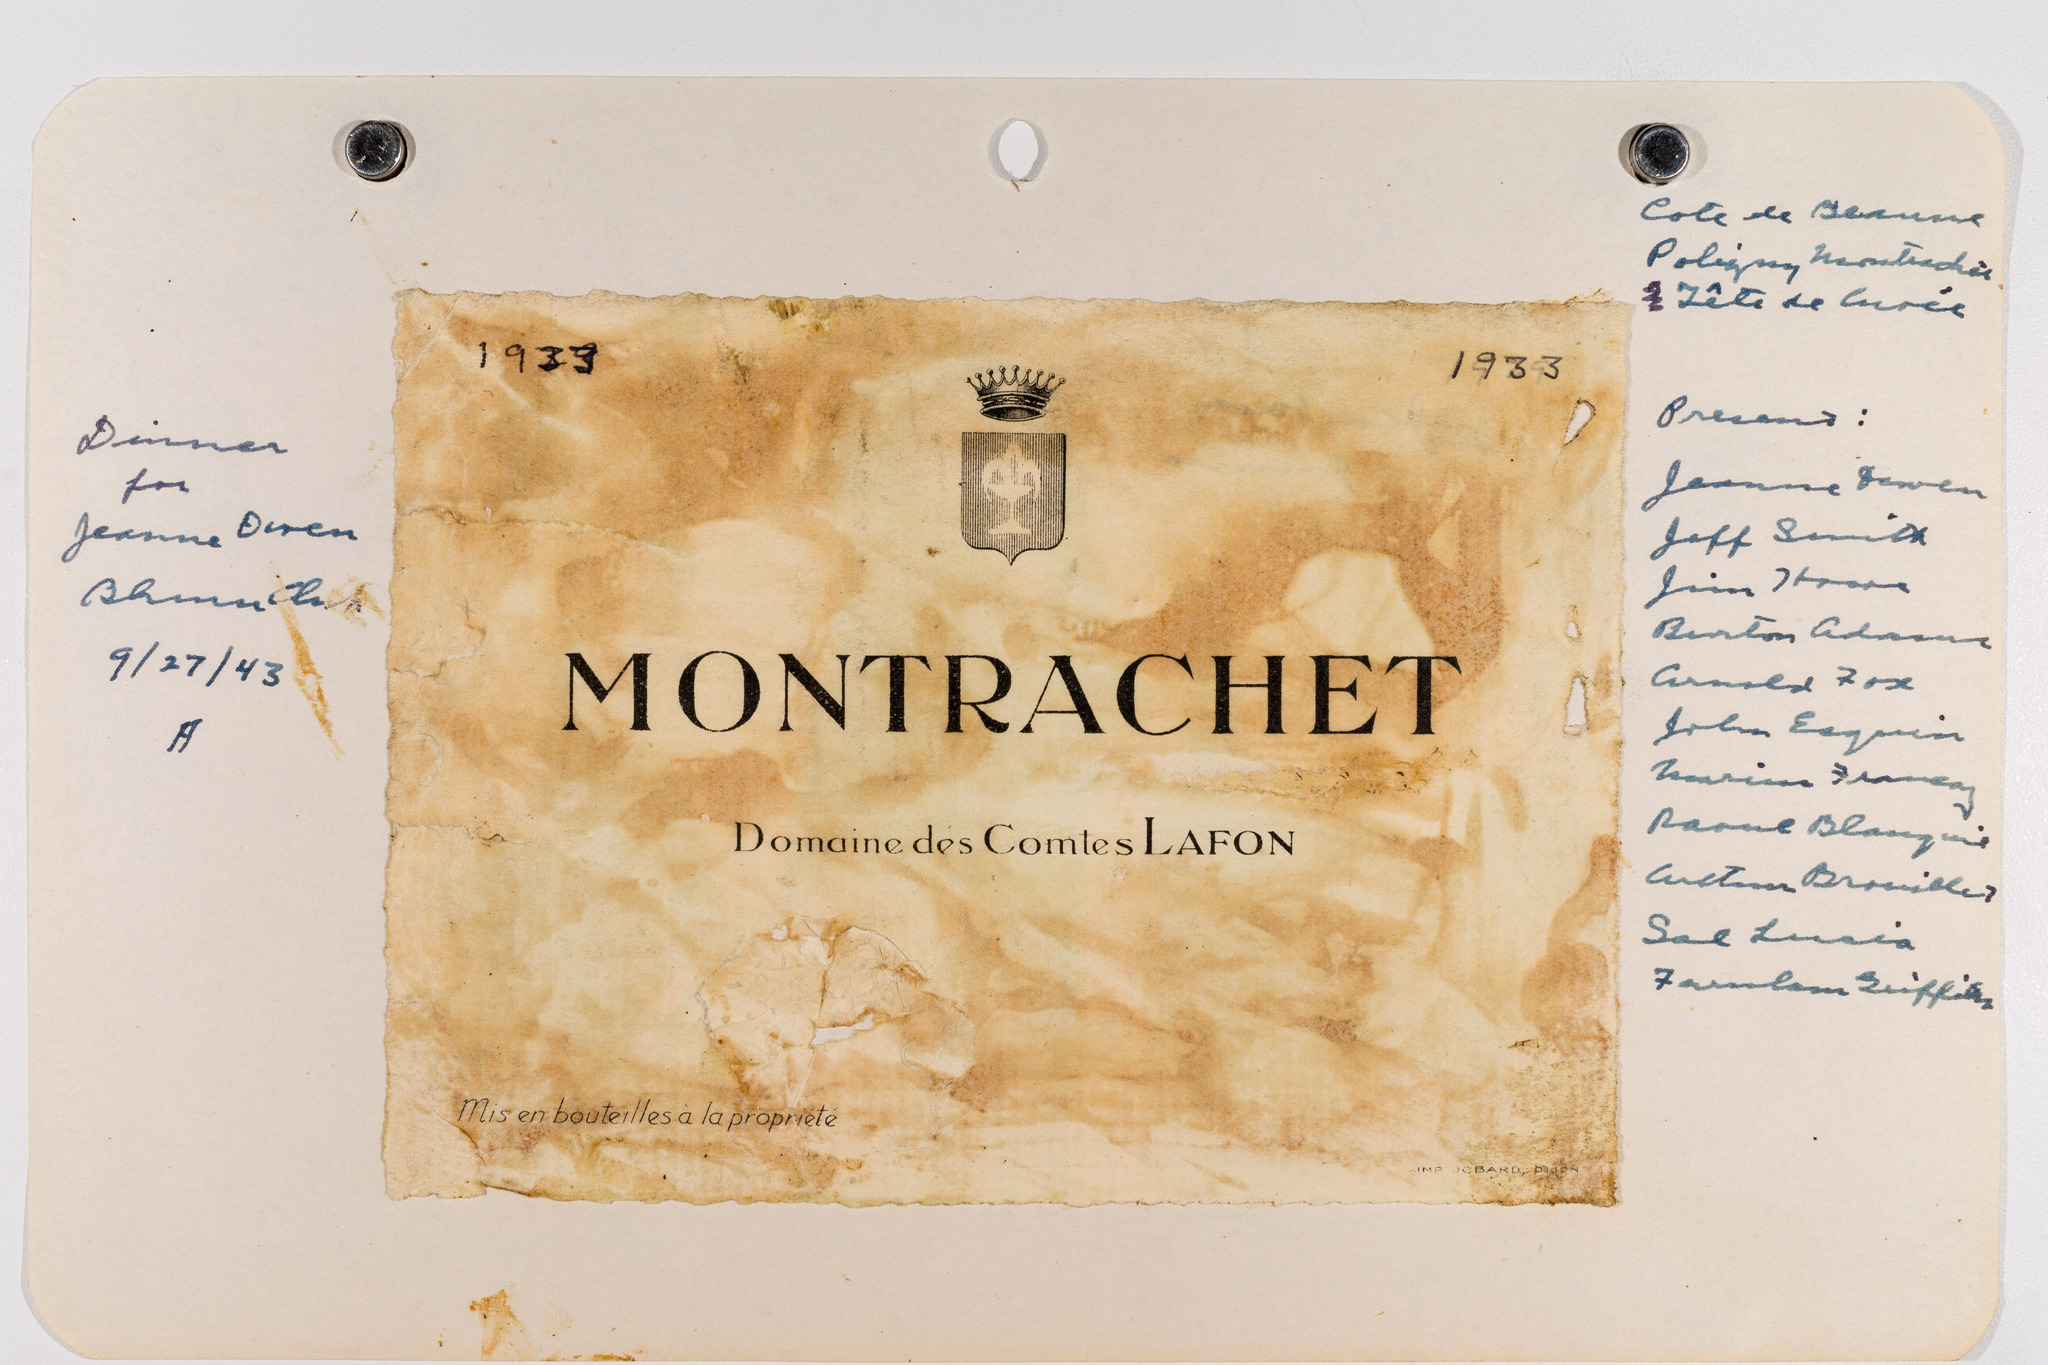 Dinner
for
Jeanne Owen
9/27/43
A
1933
1933
MONTRACHET
Domaine des Comtes LAFON
Mis en bouteilles à la propriété
IMP JOBARD, DIJON
Cote de Beaune
Poligny Montrachet
Tête de Cuvée
Present:
Jeanne Owen
Jeff Smith
Jim Howe
Burton Adams
Arnold Fox
John Esquin
Francis
Raoul Blanquie
Brouillet
Sal Lucia
Farnham Griffiths